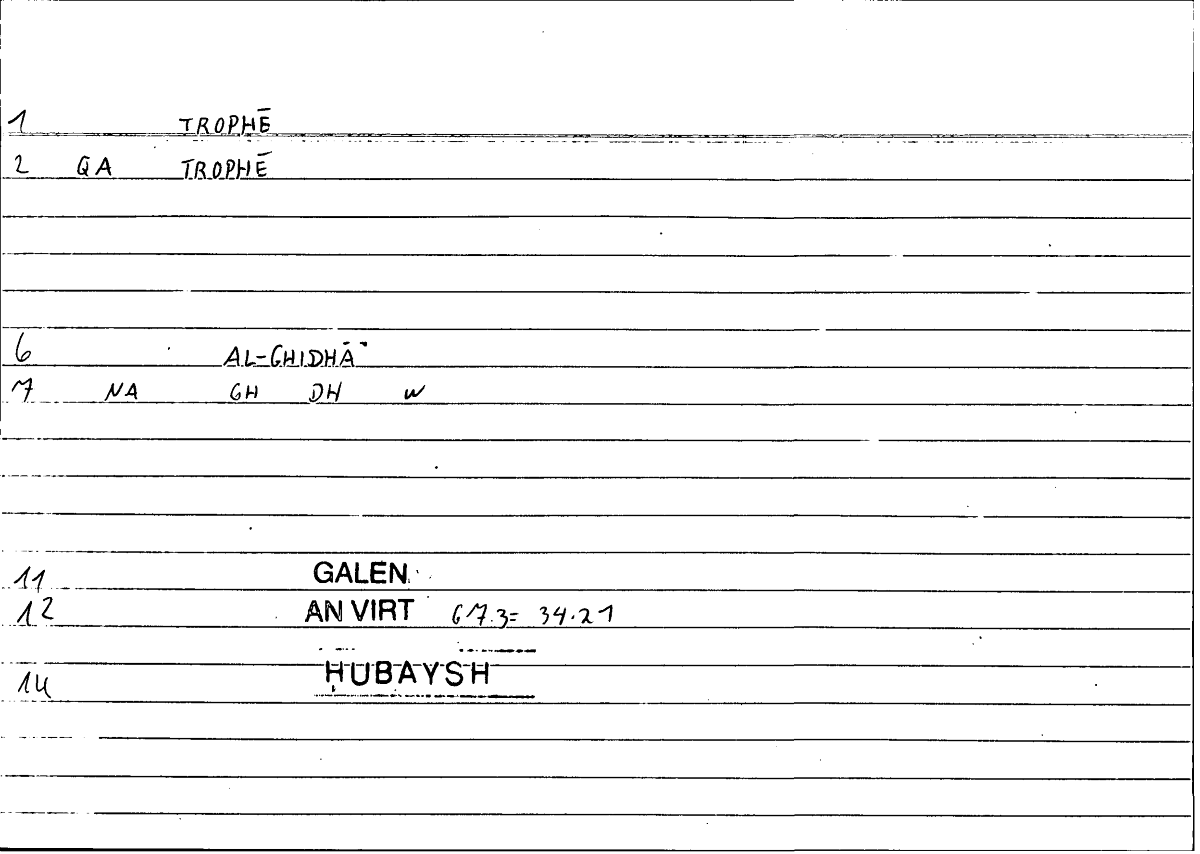 1 TROPHĒ
2 QA TROPHĒ
6 AL-GHIDHĀ'
7 NA GH DH W
11 GALEN
12 AN VIRT 67.3= 34.21
14 HUBAYSH